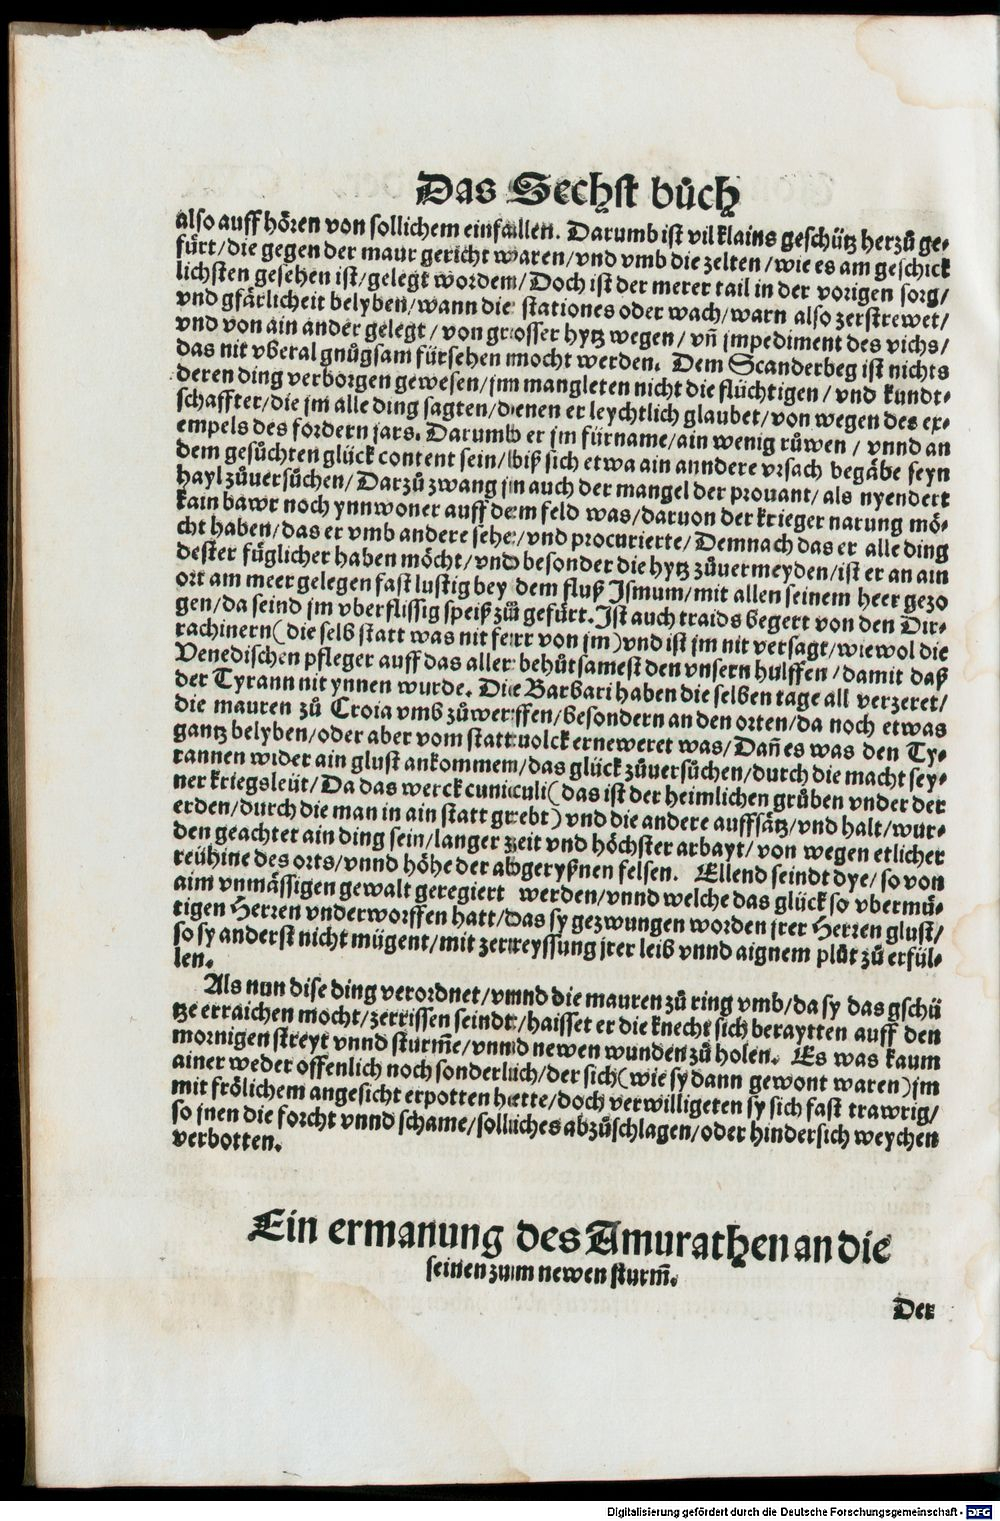 Das Sechst bůch
also auff hören von sollichem einfallen. Darumb ist vil klains geschütz herzů ge-
fürt/die gegen der maur gericht waren/vnd vmb die zelten/wie es am geschick
lichsten gesehen ist/gelegt worden/Doch ist der merer tail in der vorigen sorg/
vnd gfärlicheit belyben/wann die stationes oder wach/warn also zerstrewet/
vnd von ain ander gelegt/von grosser hytz wegen/vñ jmpediment des vichs/
das nit vberal gnůgsam fürsehen mocht werden. Dem Scanderbeg ist nichts
deren ding verborgen gewesen/jm mangleten nicht die flüchtigen/vnd kundt-
schaffter/die jm alle ding sagten/denen er leychtlich glaubet/von wegen des ex-
empels des fordern jars. Darumb er jm fürname/ain wenig růwen/vnnd an
dem gesůchten glück content sein/biß sich etwa ain anndere vrsach begäbe seyn
hayl zůuersůchen/Darzů zwang jn auch der mangel der prouant/als nyendert
kain bawr noch ynnwoner auff dem feld was/daruon der krieger narung mö-
cht haben/das er vmb andere sehe/vnd procurierte/Demnach das er alle ding
dester füglicher haben möcht/vnd besonder die hytz zůuermeyden/ist er an ain
ort am meer gelegen fast lustig bey dem fluß Jsmum/mit allen seinem heer gezo
gen/da seind jm vberflissig speiß zů gefürt. Jst auch traids begert von den Dir-
rachinern(die selb statt was nit ferr von jm)vnd ist jm nit versagt/wiewol die
Venedischen pfleger auff das aller behůtsamest den vnsern hulffen/damit daß
der Tyrann nit ynnen wurde. Die Barbari haben die selben tage all verzeret/
die mauren zů Croia vmb zůwerffen/besondern an den orten/da noch etwas
gantz belyben/oder aber vom stattuolck erneweret was/Dañ es was den Ty-
rannen wider ain glust ankommem/das glück zůuersůchen/durch die macht sey-
ner kriegsleüt/Da das werck cuniculi(das ist der heimlichen grůben vnder der
erden/durch die man in ain statt grebt)vnd die andere auffsätz/vnd halt/wur-
den geachtet ain ding sein/langer zeit vnd höchster arbayt/von wegen etlicher
reühine des orts/vnnd höhe der abgeryßnen felsen. Ellend seindt dye/so von
aim vnmässigen gewalt geregiert werden/vnnd welche das glück so vbermü-
tigen Herren vnderworffen hatt/das sy gezwungen worden jrer Herren glust/
so sy anderst nicht mügent/mit zerreyssung jrer leib vnnd aignem plůt zů erfül-
len.
Als nun dise ding verordnet/vnnd die mauren zů ring vmb/da sy das gschü
tze erraichen mocht/zerrissen seindt/haisset er die knecht sich beraytten auff den
mornigen streyt vnnd sturm̃e/vnnd newen wunden zů holen. Es was kaum
ainer weder offenlich noch sonderlich/der sich(wie sy dann gewont waren)jm
mit frölichem angesicht erpotten hette/doch verwilligeten sy sich fast trawrig/
so jnen die forcht vnnd schame/solliches abzůschlagen/oder hindersich weychen
verbotten.
Ein ermanung des Amurathen an die
seinen zum newen sturm̃.
Der
Digitalisierung gefördert durch die Deutsche Forschungsgemeinschaft - DFG